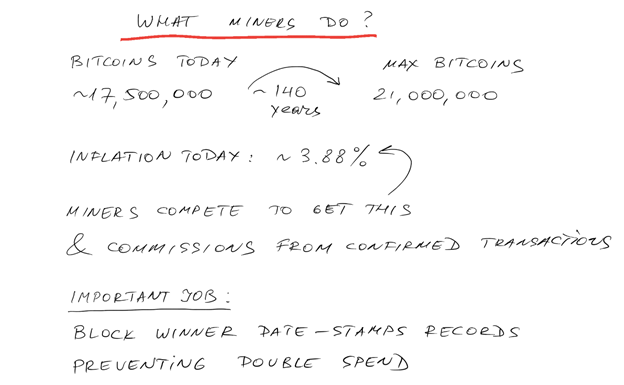 WHAT MINERS DO?
BITCOINS TODAY MAX BITCOINS
~17,500,000 ~140 years 21,000,000
INFLATION TODAY: ~3.88%
MINERS COMPETE TO GET THIS
& COMMISSIONS FROM CONFIRMED TRANSACTIONS
IMPORTANT JOB:
BLOCK WINNER DATE-STAMPS RECORDS
PREVENTING DOUBLE SPEND